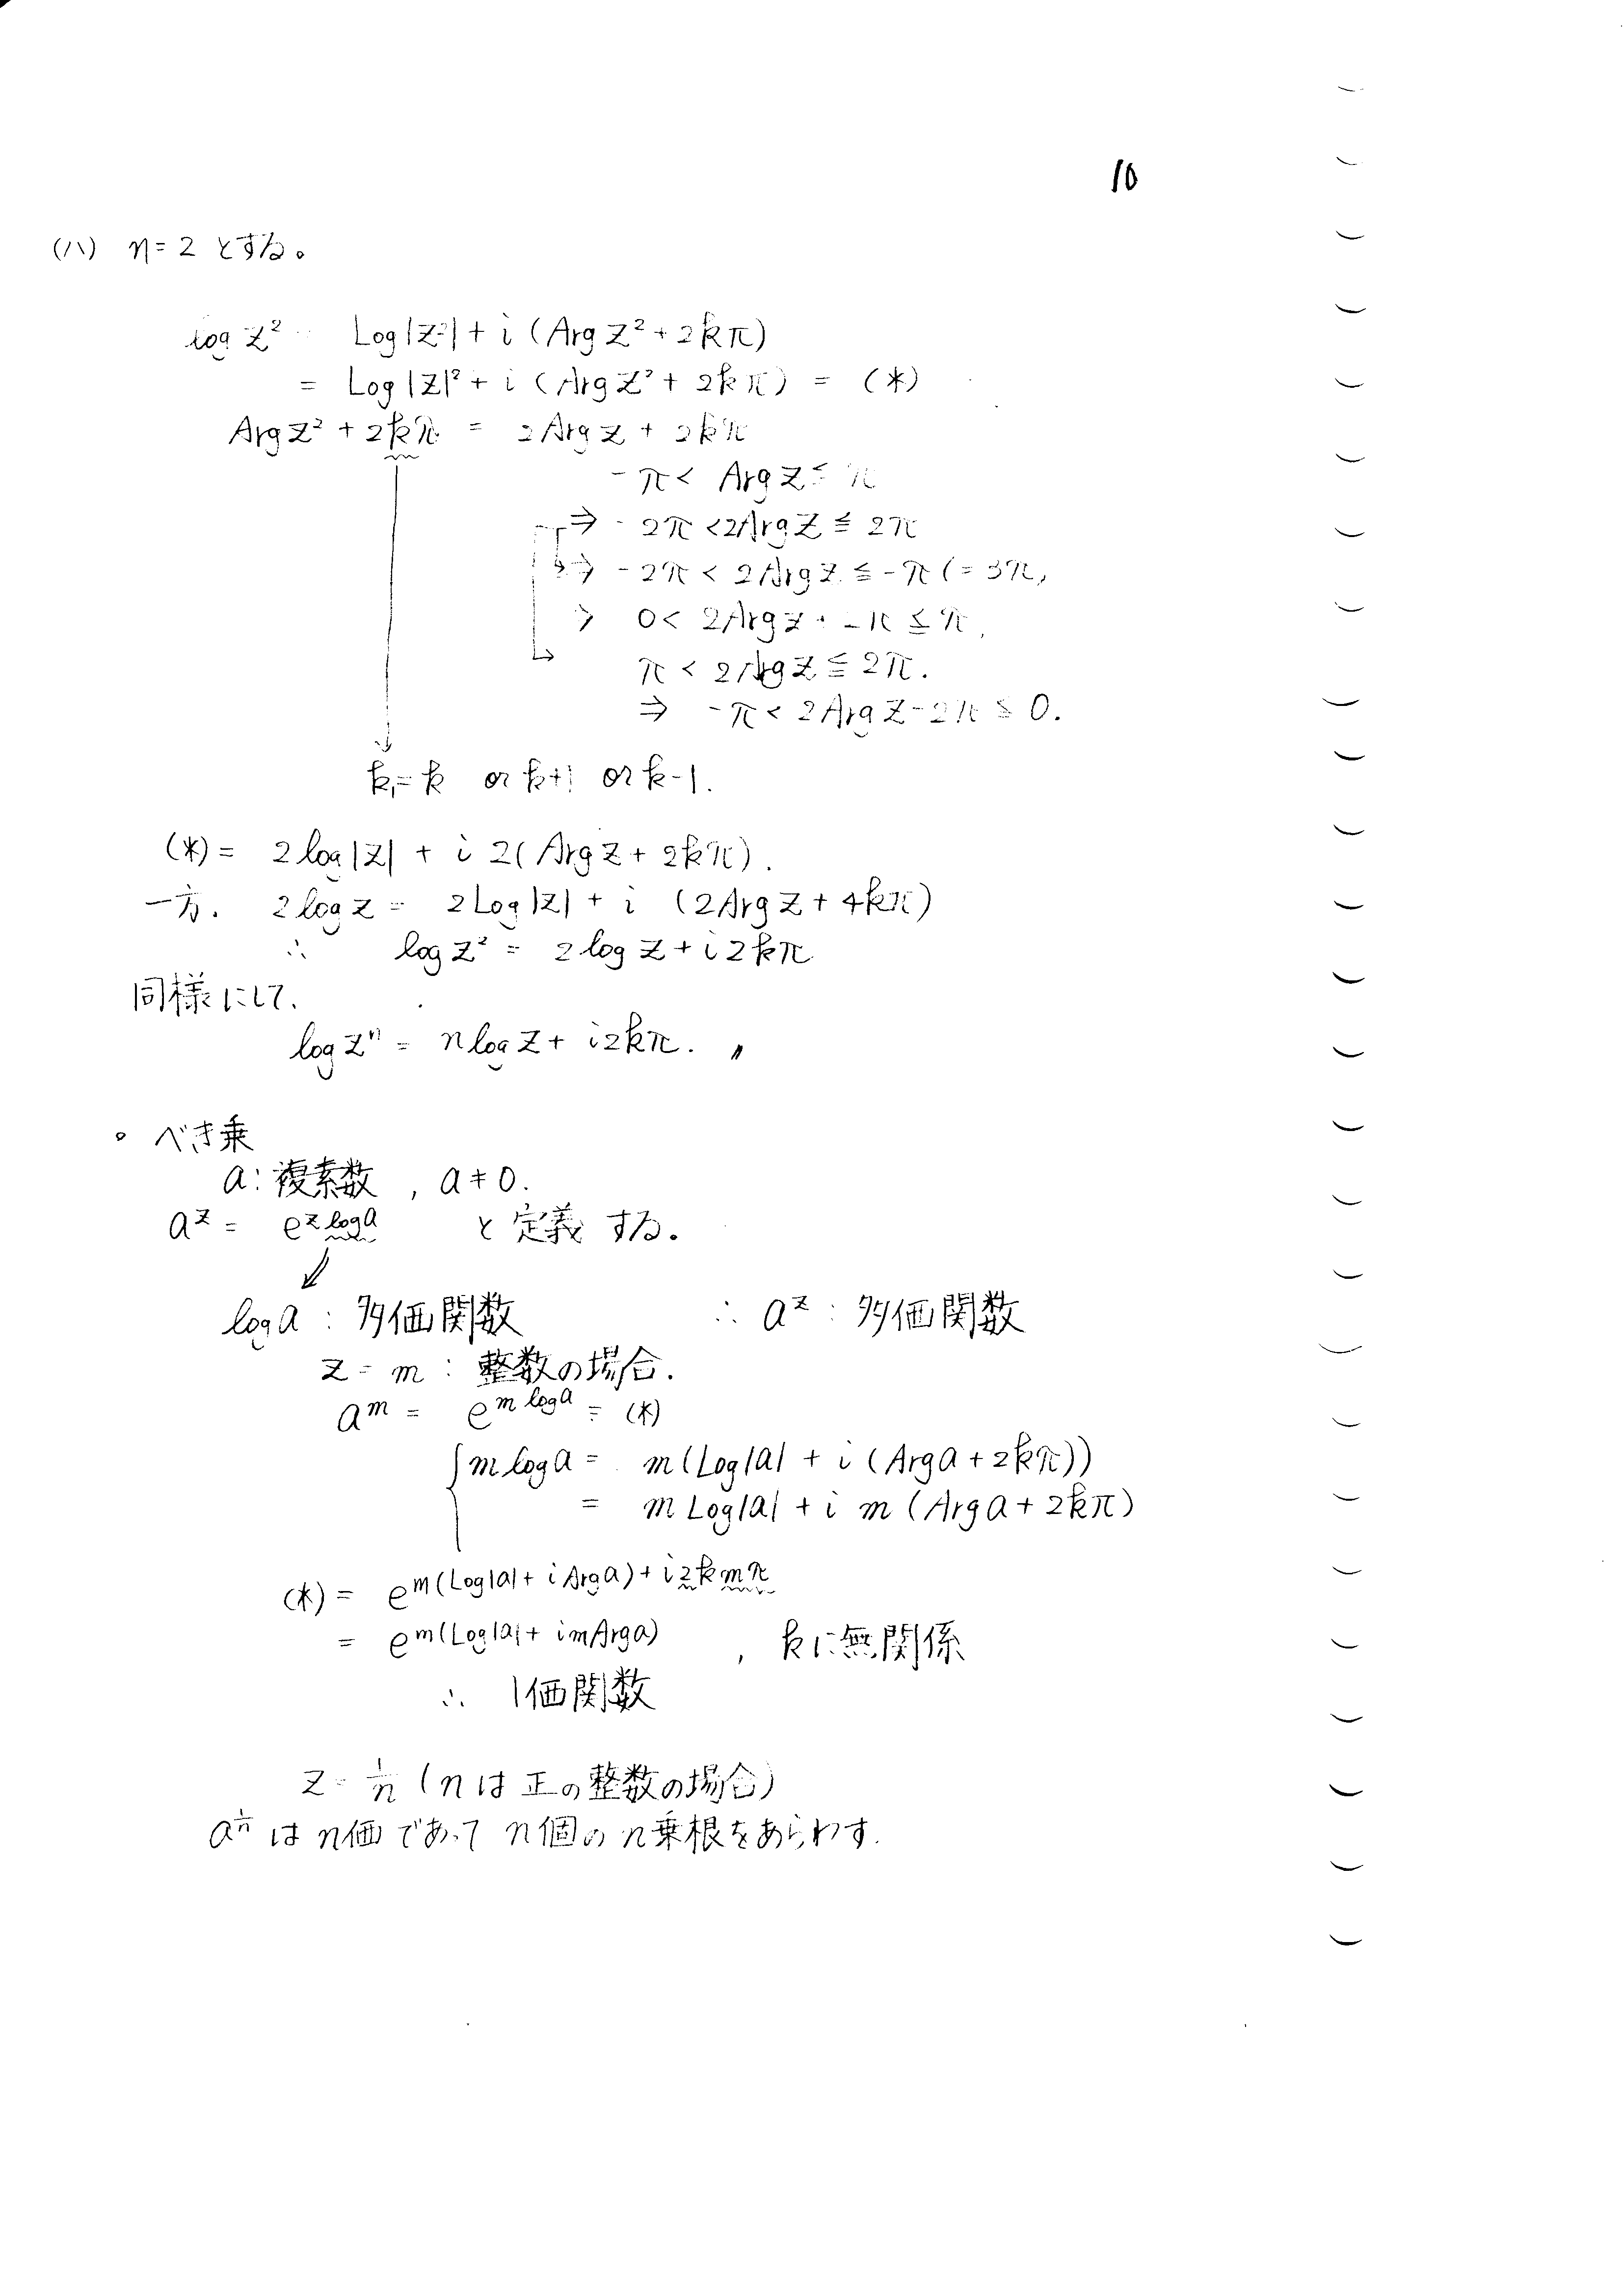 10
(ハ) n=2 とする。
log z² = Log|z²| + i (Arg z² + 2kπ)
= Log|z|² + i (Arg z² + 2kπ) = (*)
Arg z² + 2kπ = 2Arg z + 2kπ
-π < Arg z ≦ π
⇒ -2π < 2Arg z ≦ 2π
⇒ -2π < 2Arg z ≦ -π
0 < 2Arg z + 2π ≦ π,
π < 2Arg z ≦ 2π.
⇒ -π < 2Arg z - 2π ≦ 0.
k₁ = k or k+1 or k-1.
(*) = 2log|z| + i 2(Arg z + 2kπ).
一方. 2log z = 2Log|z| + i (2Arg z + 4kπ)
∴ log z² = 2log z + i2kπ
同様にして、
log zⁿ = n log z + i2kπ. 〃
° べき乗
a: 複素数, a≠0.
a^z = e^{z log a} と定義する。
log a : 多価関数 ∴ a^z : 多価関数
z = m : 整数の場合.
a^m = e^{m log a} = (*)
m log a = m(Log|a| + i (Arg a + 2kπ))
= m Log|a| + i m (Arg a + 2kπ)
(*) = e^{m(Log|a| + i Arg a) + i2kmπ}
= e^{m(Log|a| + imArg a)}, kに無関係
∴ 1価関数
z = 1/n (nは正の整数の場合)
a^{1/n} は n価であって n個のn乗根をあらわす.